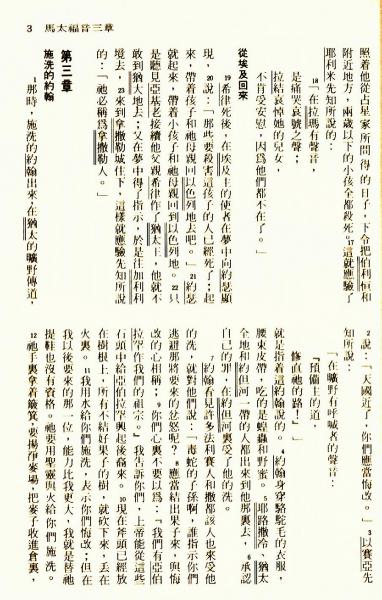 3 馬太福音三章
照着他從占星家所問得的日子,下令把伯利恒和
附近地方,兩歲以下的小孩全都殺死。17這就應驗了
耶利米先知所說的:
18「在拉瑪有聲音,
是痛哭哀號之聲;
拉結哀悼她的兒女,
不肯受安慰,因爲他們都不在了。」
從埃及回來
19希律死後,在埃及主的使者在夢中向約瑟顯
現,20說:「那些要殺害這孩子的人已經死了;起
來,帶着孩子和祂母親回以色列地去吧。」21約瑟
就起來,帶着小孩子和祂母親回到以色列地。22只
是聽見亞基老接續他父親希律作了猶太王,他就不
敢到猶太地去;又在夢中得了指示,於是往加利利
境去,23來到拿撒勒城住下,這樣就應驗先知所說
的:「祂必稱爲拿撒勒人。」
第三章
施洗的約翰
1那時,施洗的約翰出來,在猶太的曠野傳道,
2說:「天國近了,你們應當悔改。」3以賽亞先
知所說:
「在曠野有呼喊者的聲音:
『預備主的道,
修直祂的路!』」
就是指着這約翰說的。4約翰身穿駱駝毛的衣服,
腰束皮帶,吃的是蝗蟲和野蜜。5耶路撒冷、猶太
全地和約但河一帶的人都出來到他那裏去,6承認
自己的罪,在約但河裏受了他的洗。
7約翰看見許多法利賽人和撒都該人也來受他
的洗,就對他們說:「毒蛇的子孫啊,誰指示你們
逃避那將要來的忿怒呢?8應當結出果子來,與悔
改的心相稱;9你們心裏不要以爲:『我們有亞伯
拉罕作我們的祖宗。』我告訴你們,上帝能從這些
石頭中給亞伯拉罕興起後裔來。10現在斧頭已經放
在樹根上,所有不結好果子的樹,就砍下來,丟在
火裏。11我用水給你們施洗,表示你們悔改;但在
我以後要來的那一位,能力比我更大,我就是替祂
提鞋也沒有資格。祂要用聖靈與火給你們施洗。
12祂手裏拿着簸箕,要揚淨麥場,把麥子收進倉裏,